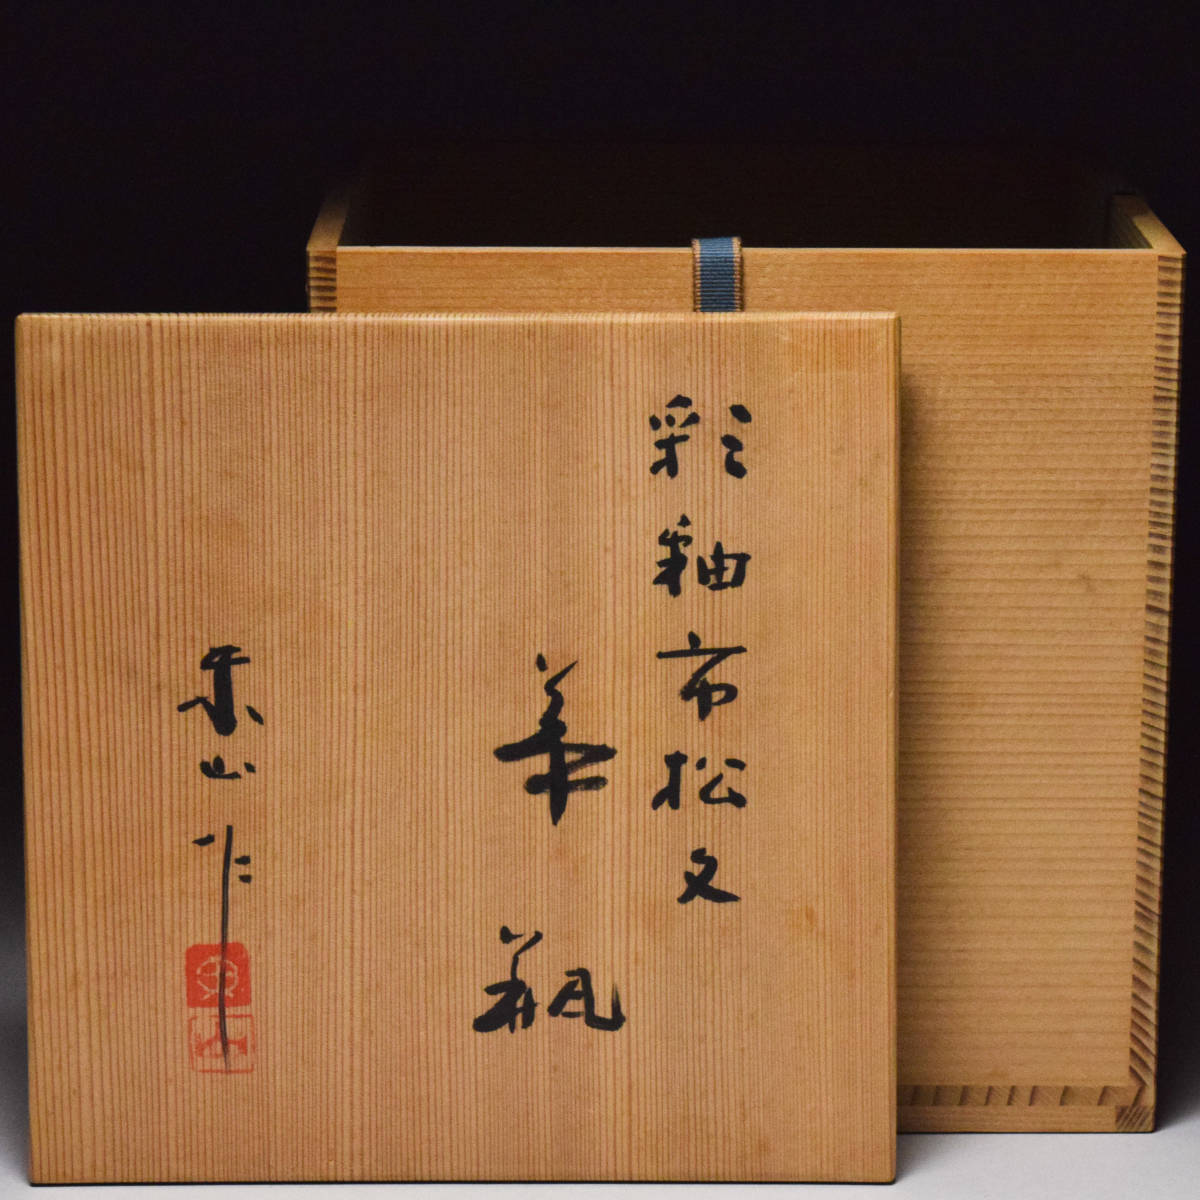 彩釉市松文
華瓶
山作